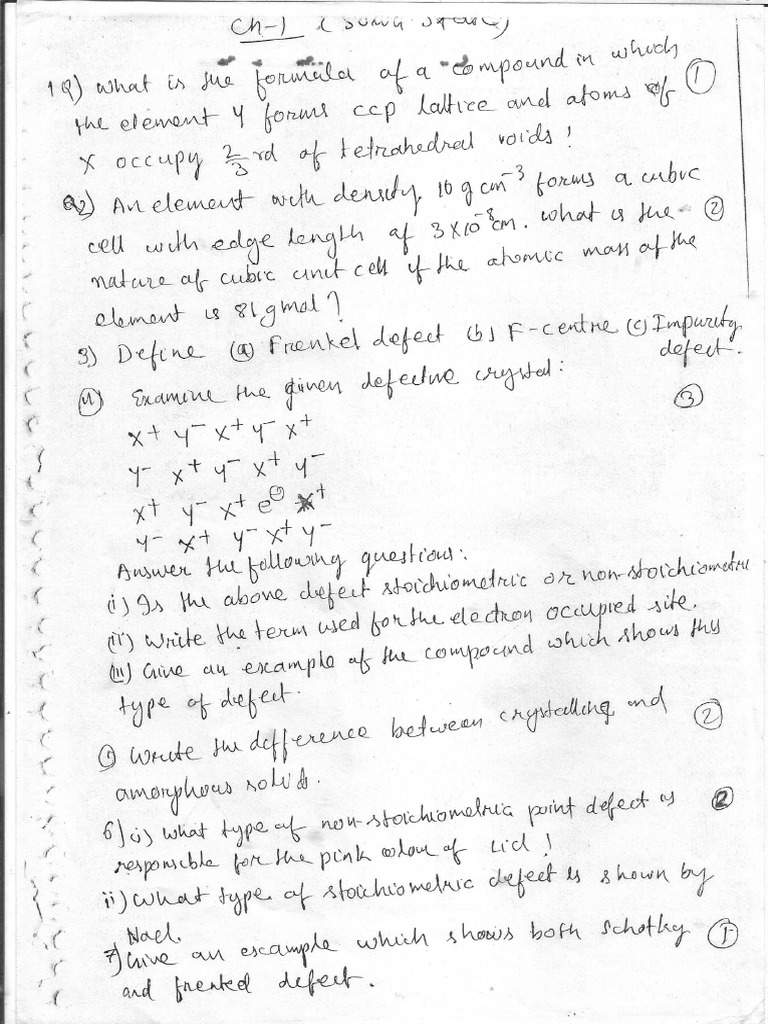 Ch-1 (Solid State)
1Q) What is the formula of a compound in which ①
the element Y forms ccp lattice and atoms of
X occupy 2/3 rd of tetrahedral voids!
Q2) An element with density 10 g cm⁻³ forms a cubic
cell with edge length of 3×10⁻⁸cm. What is the ②
nature of cubic unit cell if the atomic mass of the
element is 81gmol?
3) Define (a) Frenkel defect (b) F-centre (c) Impurity
defect.
④ Examine the given defective crystal: ③
X⁺ Y⁻ X⁺ Y⁻ X⁺
Y⁻ X⁺ Y⁻ X⁺ Y⁻
X⁺ Y⁻ X⁺ e⊖ X⁺
Y⁻ X⁺ Y⁻ X⁺ Y⁻
Answer the following questions:
(i) Is the above defect stoichiometric or non-stoichiometric
(ii) Write the term used for the electron occupied site.
(iii) Give an example of the compound which shows this
type of defect.
Write the difference between crystalling and ②
amorphous solids.
6) i) What type of non-stoichiometric point defect is ②
responsible for the pink colour of LiCl!
ii) What type of stoichiometric defect is shown by
Nacl.
7) Give an example which shows both Schotky ①
and frenked defect.